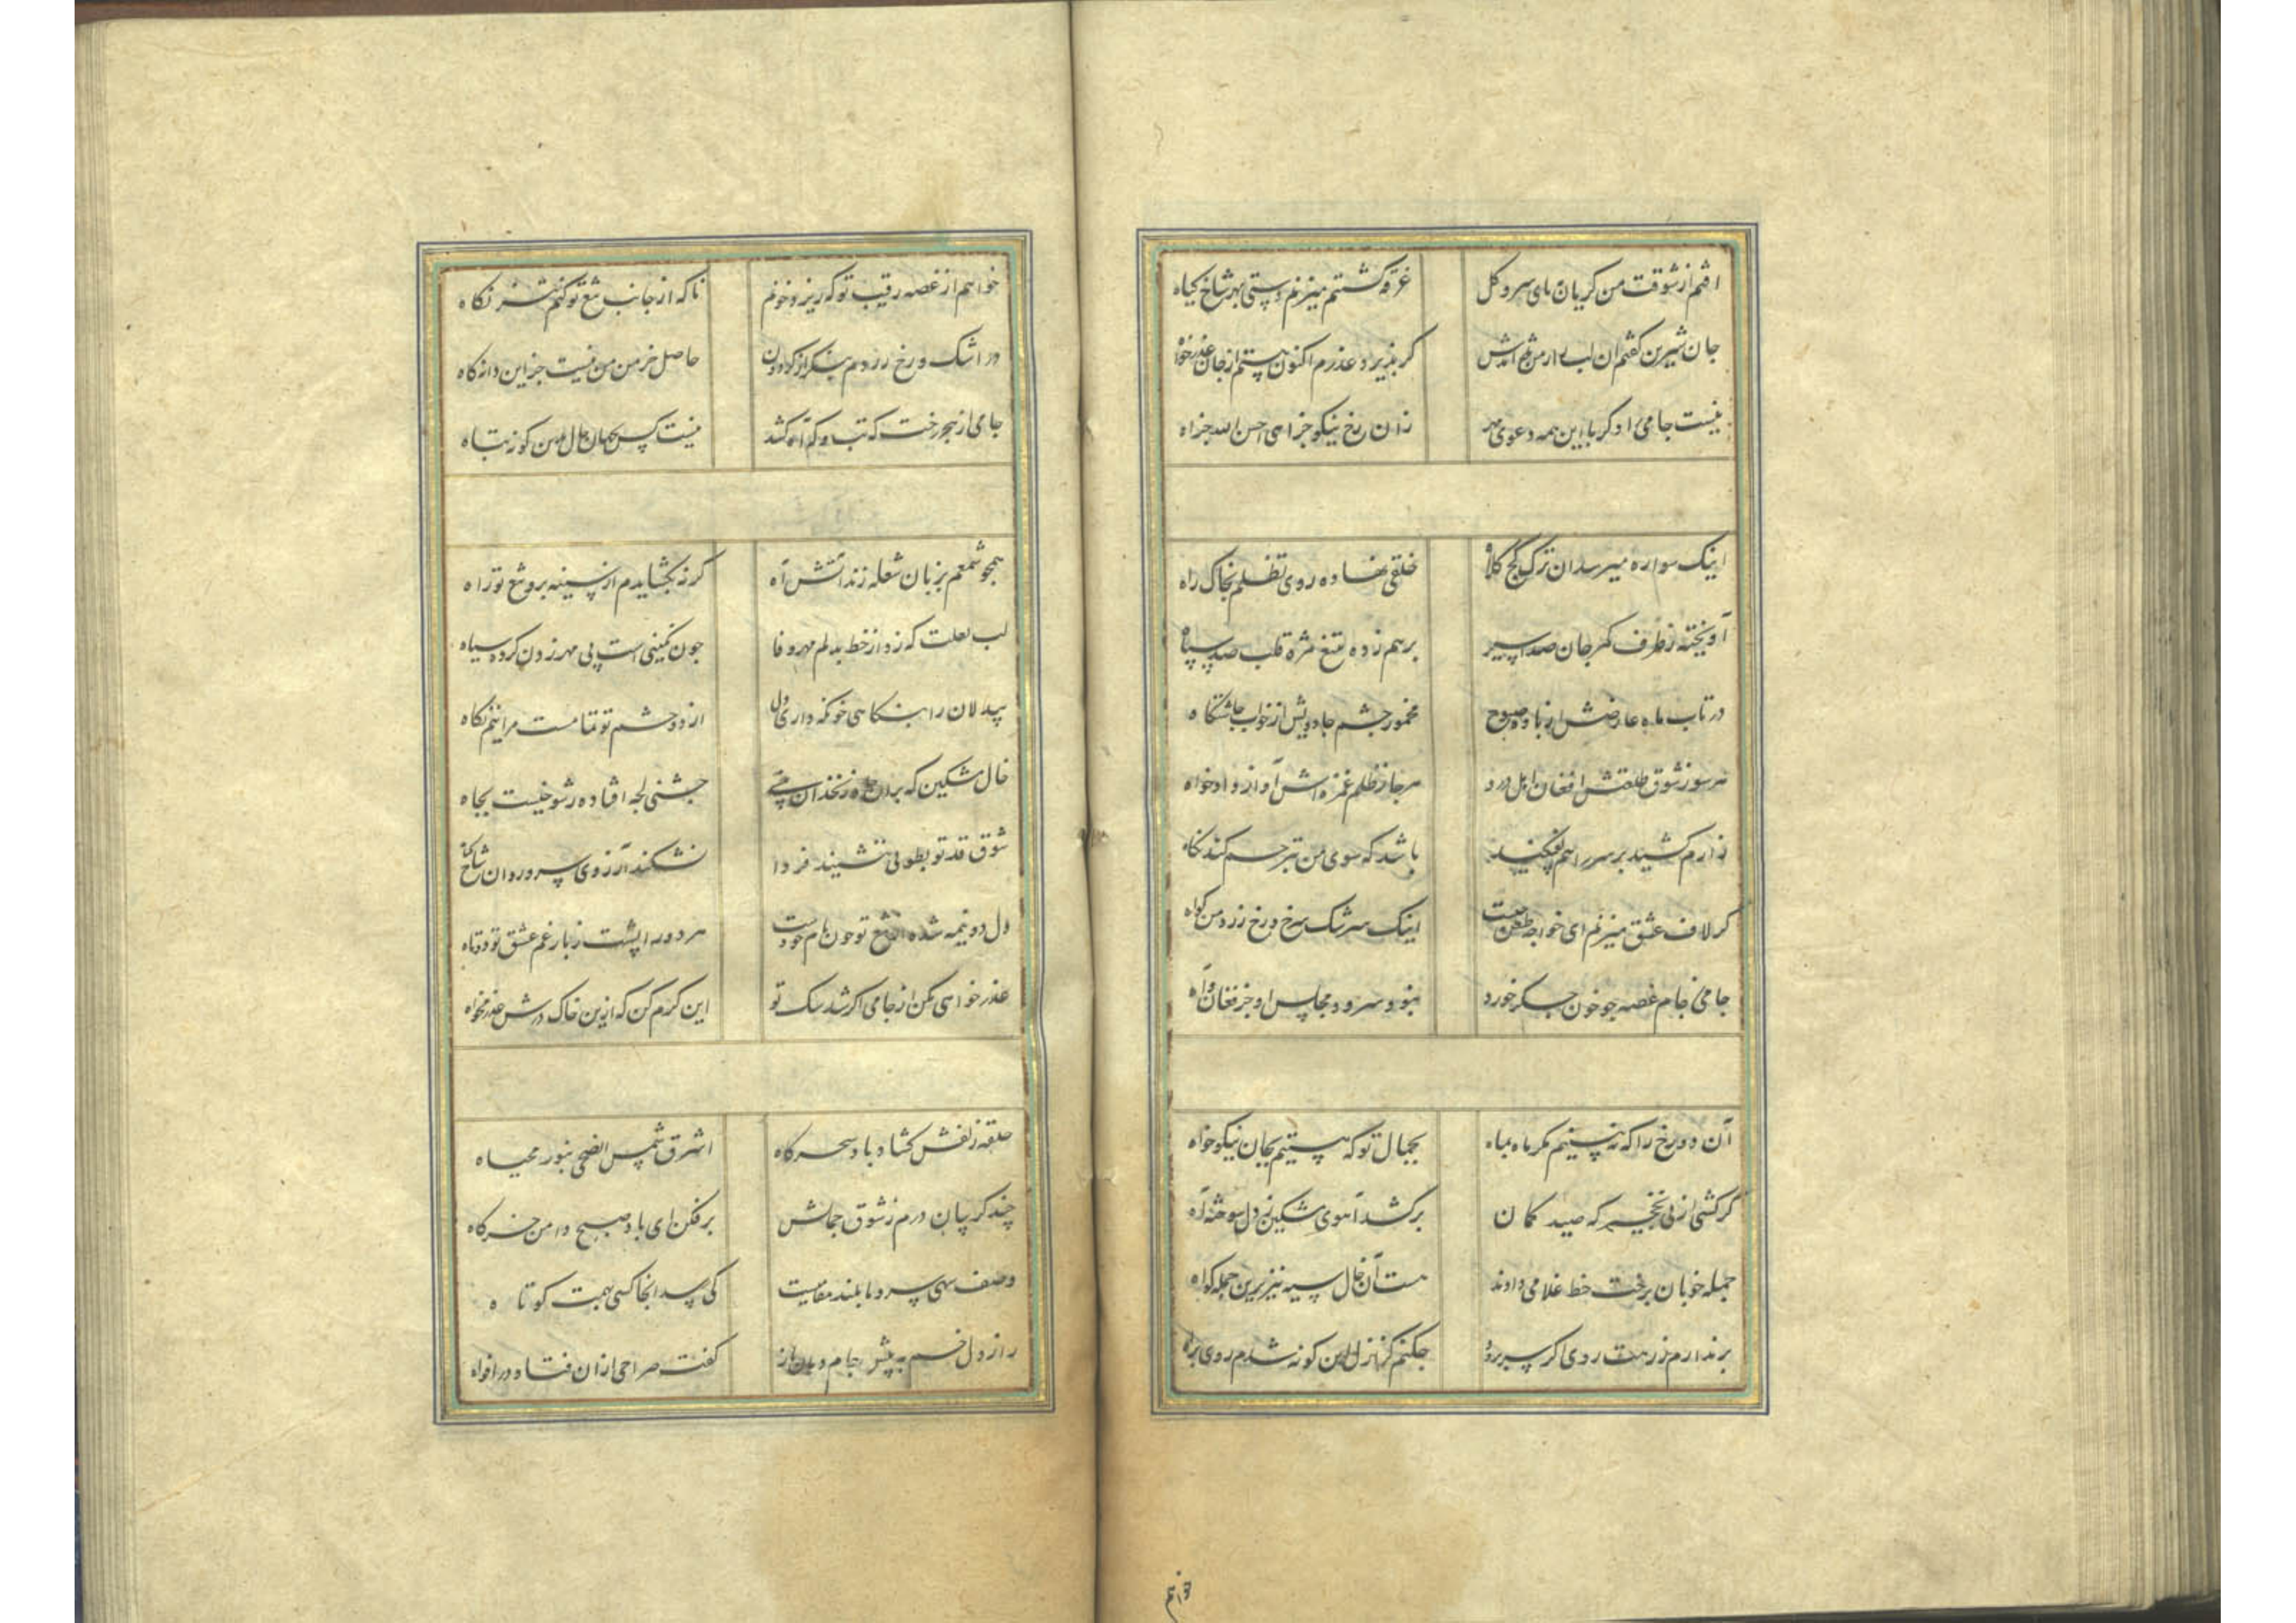 افتم از شوقت من گریان بپای سرو و گل غرقه گشتم میزنم دستی بهر شاخ کیاه
جان شیرین گفتم آن لب را ز من شد عذرم اکنون هستم از جان عذر خواه
نیست جامی را دگر با این همه دعوی مهر زان رخ نیکو جزاهی احسن الله جزاه
اینک سواره میرسد آن ترک کج کلاه خلقی نهاده روی تظلم بخاک راه
آویخته ز طرف کمر جان صد اسیر برهم زده بتیغ مژه قلب صد سپاه
در تاب ماه عارضش از باده صبوح مخمور چشم جادویش از خواب چاشتگاه
هر سو ز شوق طلعتش افغان اهل درد هر جا ز ظلم غمزه اش آواز دادخواه
زارم کشید بر سر راهم بیفکنید باشد که سوی من بترحم کند نگاه
گر لاف عشق میزنم ای خواجه طعن چیست اینک سرشک سرخ و رخ زرد من گواه
جامی ز جام غصه چو خون جگر خورد نبود سرود مجلس او جز فغان و آه
آن دو رخ را که نه بینیم مگر ماه بماه بجمال تو که هستیم بجان نیکوخواه
گر کشی از پی نخجیر که صید کمان برکشد آهوی مشکین ز دل سوخته آه
جمله خوبان برخت خط غلامی دادند هست آن خال سیه نیز برین جمله گواه
برندارم ز رهت روی اگر سر برود چکنم کز ازل این گونه شدم روی براه
خواهم
خواهم از غصه رقیب تو که ریزد خونم تا که از جانب تیغ تو کنم تیز نگاه
در اشک و رخ زردم بنگر از که و دون حاصل خرمن من نیست جز این دانه و کاه
جامی از هجر رخت که تب و که آه کشد نیست کس را بجهان حال بدین گونه تباه
همچو شمعم بزبان شعله زند آتش آه گر نه بگشایدم از سینه برو تیغ تو راه
لب لعلت که زد از خط بدلم مهر وفا چون نگینی است پی مهر زدن کرده سیاه
بیدلان را بنگاهی چو نگه داری دل از دو چشم تو تمامست مرا نیم نگاه
خال مشکین که بران چاه زنخدان حبشی بچه افتاده ز شوخیست بچاه
شوق قد تو بطوبی ننشیند فردا نشکند آرزوی سرو روان شاخ گیاه
دل دو نیمه شده از تیغ تو چون نام خودست هر دو را پشت ز بار غم عشق تو دوتاه
عذر خواهی مکن از جامی اگر شد سگ تو این کرم کن که ازین خاک درش عذر مخواه
حلقه زلفش گشاد باد سحرگاه اشرق شمس الضحی بنور محیاه
چند گریبان درم ز شوق جمالش برفکن ای باد صبح دامن خرگاه
وصف سهی سرو ما بلند مقامیست کی رسد آنجا کسی بهمت کوتاه
راز دل خم به پیش جام دهان باز گفت صراحی از آن فتاد در افواه